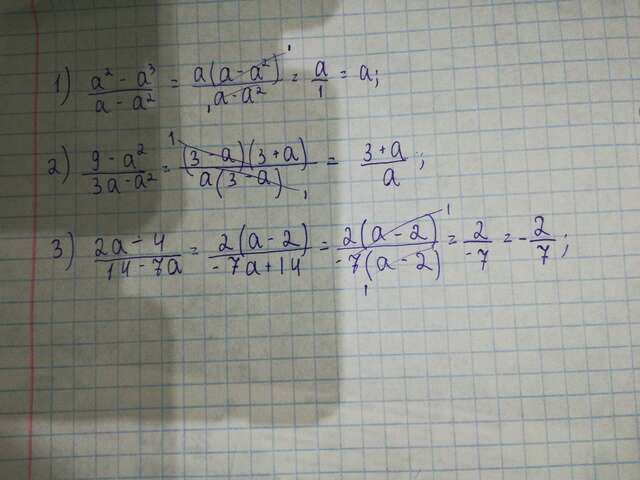 1) (a² - a³)/(a - a²) = a(a - a²)/(a - a²) = a/1 = a;
2) (9 - a²)/(3a - a²) = (3 - a)(3 + a)/a(3 - a) = (3 + a)/a;
3) (2a - 4)/(14 - 7a) = 2(a - 2)/(-7a + 14) = 2(a - 2)/-7(a - 2) = 2/-7 = -2/7;